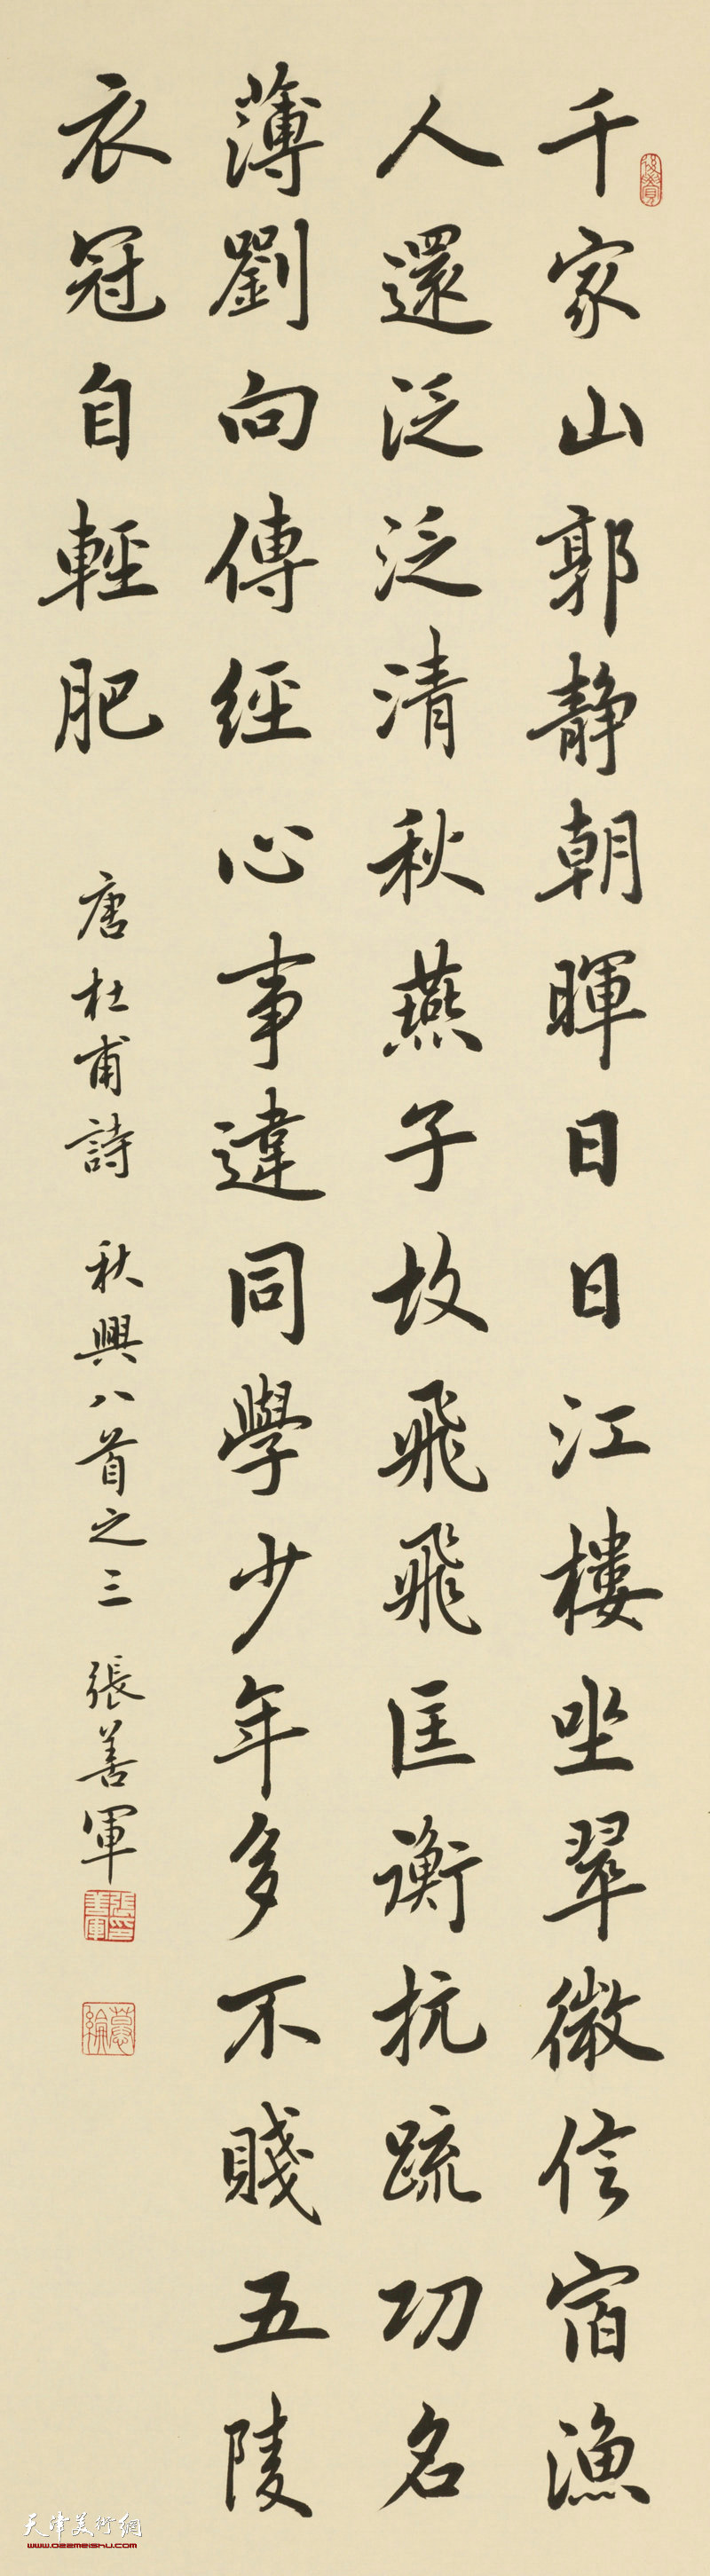 千家山郭靜朝暉日日江樓坐翠微信宿漁
人還泛泛清秋燕子故飛飛匡衡抗疏功名
薄劉向傳經心事違同學少年多不賤五陵
衣冠自輕肥
唐杜甫詩 秋興八首之三 張善軍
天津美術網
www.022meishu.com